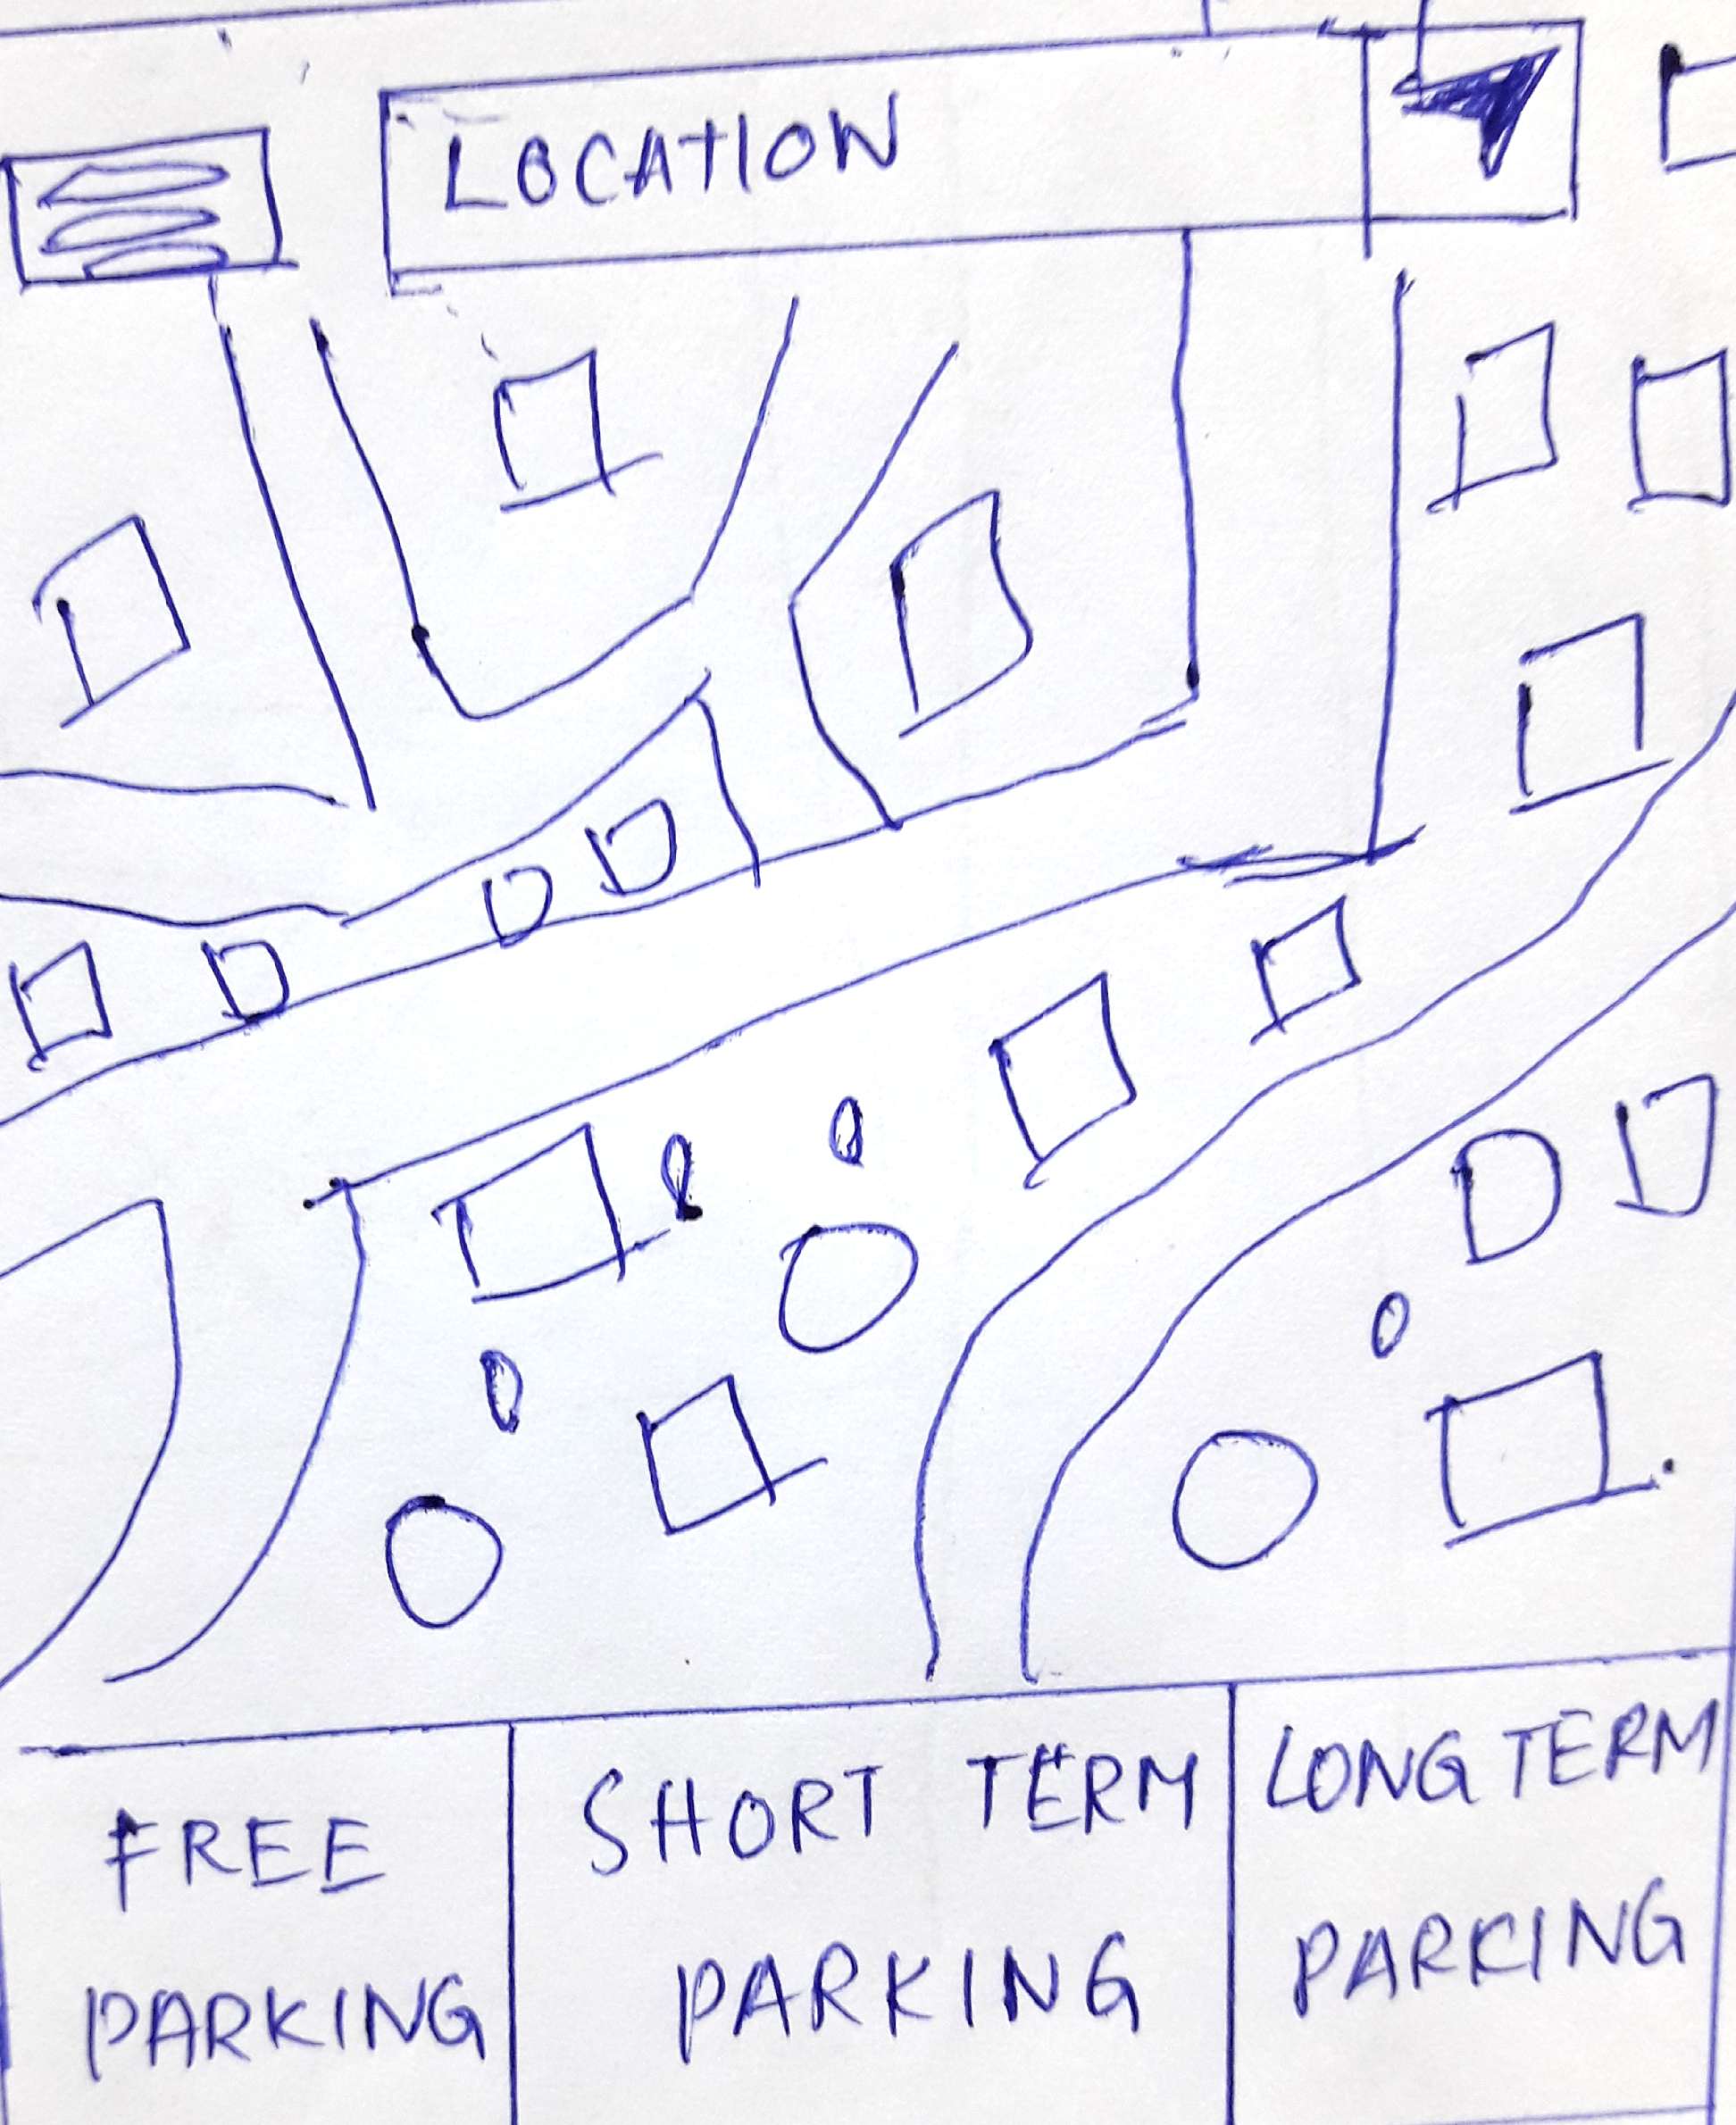 LOCATION
FREE
PARKING
SHORT TERM
PARKING
LONG TERM
PARKING